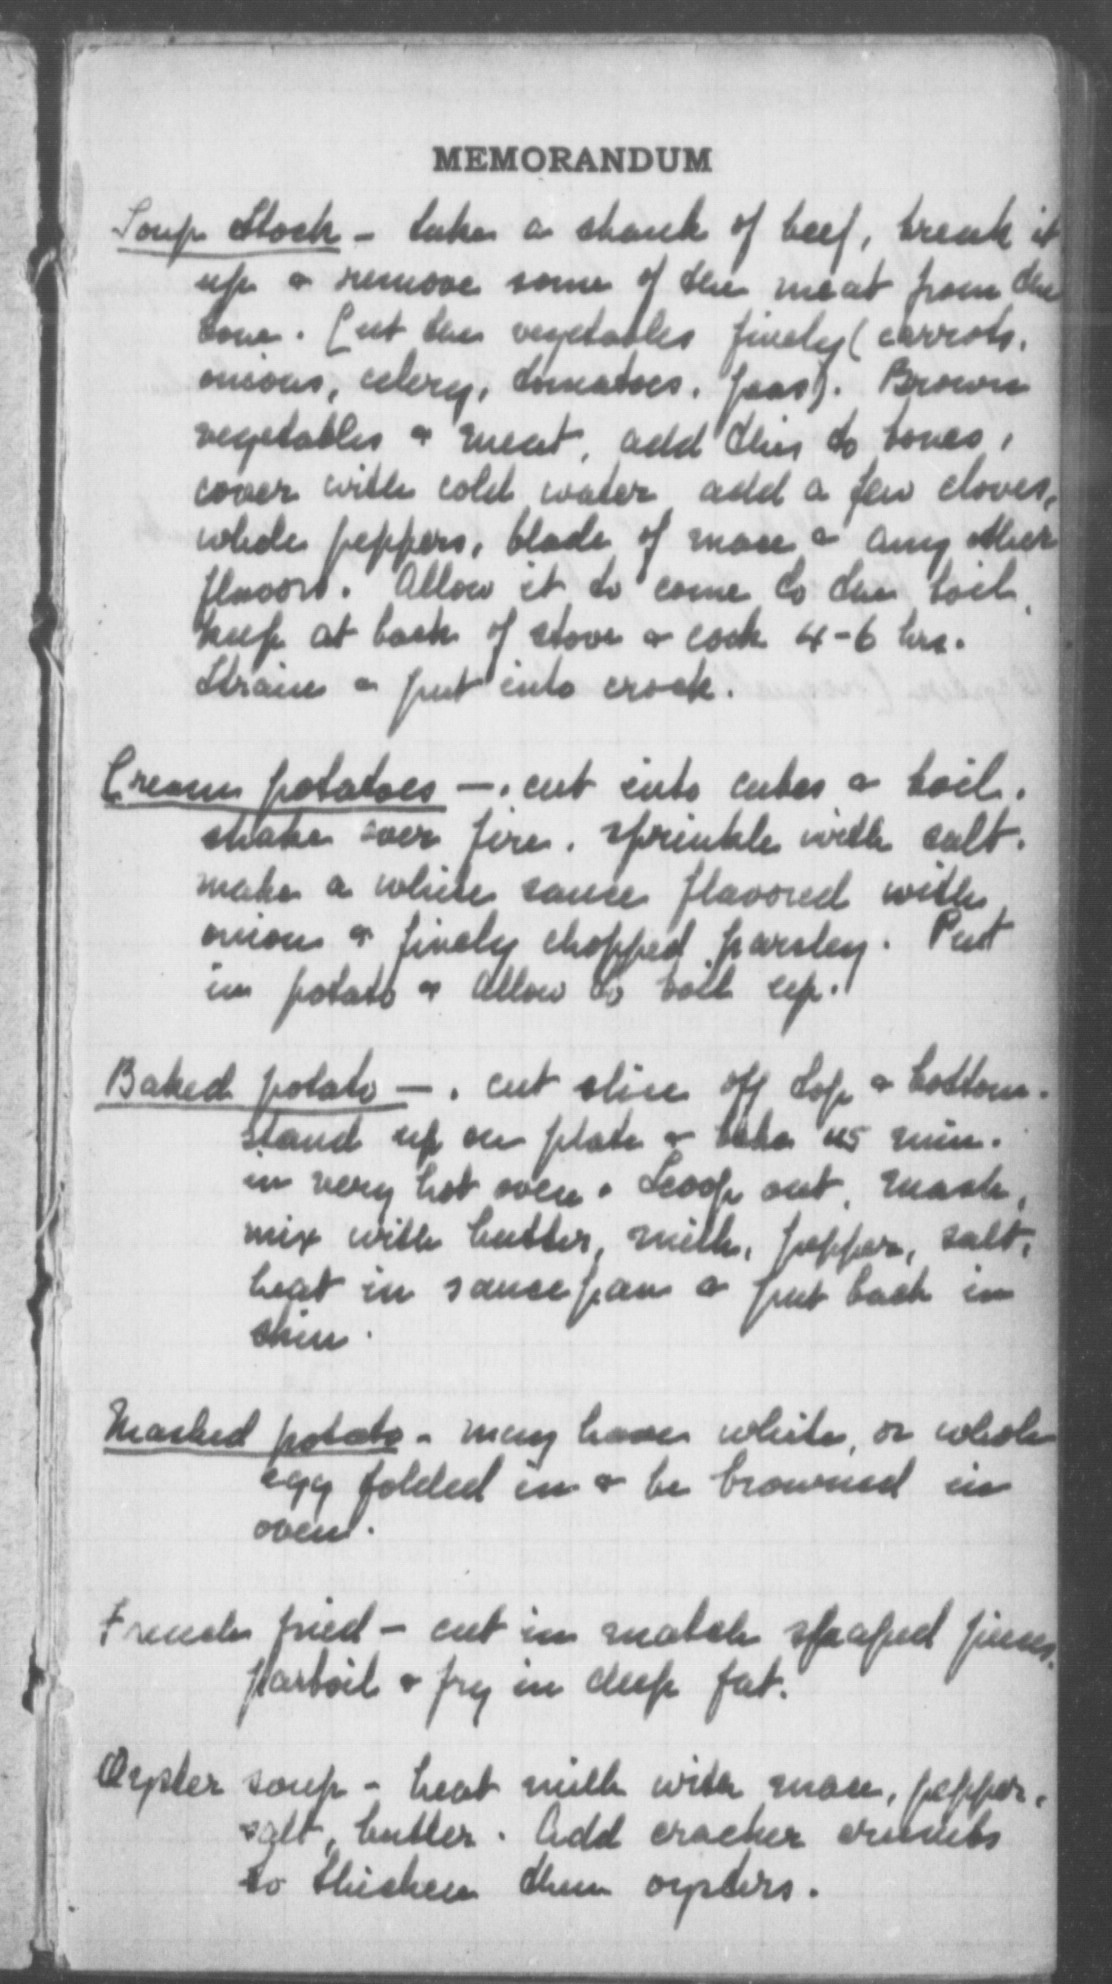 MEMORANDUM
Soup Stock - take a shank of beef, break it
up & remove some of the meat from the
bone. Cut the vegetables finely (carrots,
onions, celery, tomatoes, peas). Brown
vegetables & meat, add this to bones,
cover with cold water add a few cloves,
whole peppers, blade of mace & any other
flavors. Allow it to come to the boil,
keep at back of stove & cook 4-6 hrs.
Strain & put into crock.
Cream potatoes - . cut into cubes & boil.
shake over fire. sprinkle with salt.
make a white sauce flavored with
onion & finely chopped parsley. Put
in potato & allow to boil up.
Baked potato - . cut slice off top & bottom.
stand up on plate & bake 45 min.
in very hot oven. Scoop out, mash,
mix with butter, milk, pepper, salt,
heat in sauce pan & put back in
skin.
Mashed potato - may have white, or whole
egg folded in & be browned in
oven.
French fried - cut in match shaped pieces.
parboil & fry in deep fat.
Oyster soup - heat milk with mace, pepper,
salt, butter. Add cracker crumbs
to thicken then oysters.